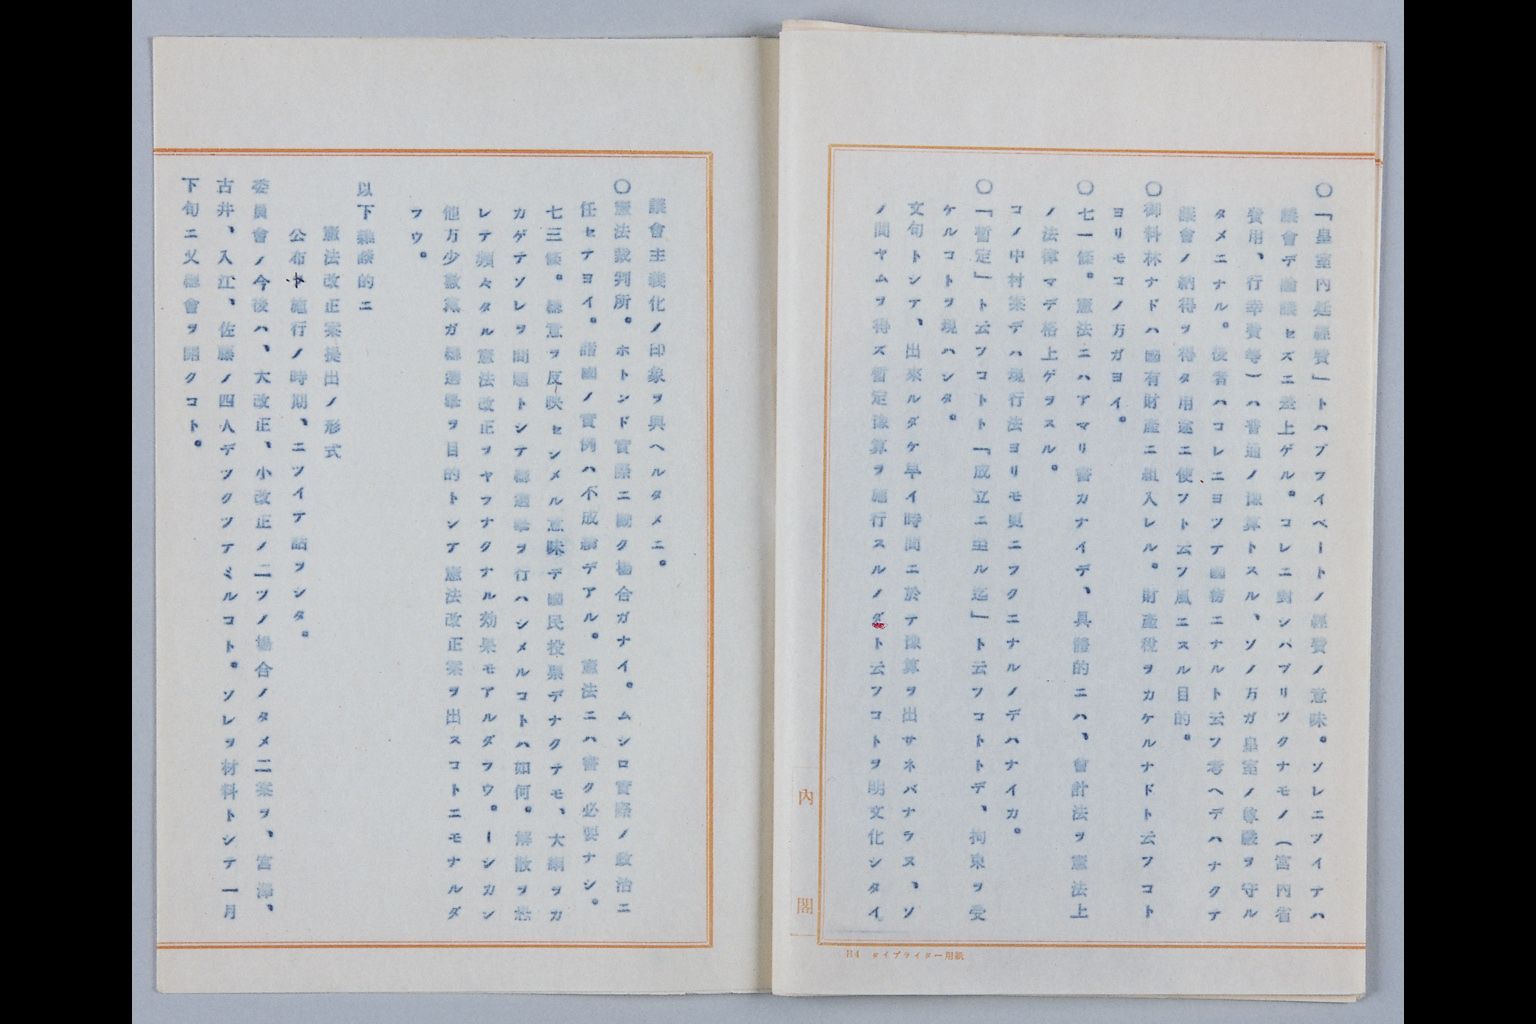 ○「皇室內廷經費」トハプライベートノ經費ノ意味。ソレニツイテハ
議會デ論議セズニ差上ゲル。コレニ對シパブリツクナモノ(宮內省
費用、行幸費等)ハ普通ノ豫算トスル、ソノ方ガ皇室ノ尊嚴ヲ守ル
タメニナル。後者ハコレニヨツテ國務ニナルト云フ考ヘデハナクテ
議會ノ納得ヲ得タ用途ニ使フト云フ風ニスル目的。
御料林ナドハ國有財產ニ組入レル。財產稅ヲカケルナドト云フコト
ヨリモコノ方ガヨイ。
○七一條。憲法ニハアマリ書カナイデ、具體的ニハ、會計法ヲ憲法上
ノ法律マデ格上ゲヲスル。
コノ中村案デハ現行法ヨリモ更ニフクニナルノデハナイカ。
○「暫定」ト云フコトト「成立ニ至ル迄」ト云フコトトデ、拘束ヲ受
ケルコトヲ現ハシタ。
文句トシテ、出來ルダケ早イ時間ニ於テ豫算ヲ出サネバナラヌ、ソ
ノ間ヤムヲ得ズ暫定豫算ヲ施行スルノダト云フコトヲ明文化シタイ
內閣
B4 タイプライター用紙
議會主義化ノ印象ヲ與ヘルタメニ。
○憲法裁判所。ホトンド實際ニ働ク場合ガナイ。ムシロ實際ノ政治ニ
任セテヨイ。諸國ノ實例ハ不成績デアル。憲法ニハ書ク必要ナシ。
七三條。總意ヲ反映セシメル意味デ國民投票デナクテモ、大綱ヲカ
カゲテソレヲ問題トシテ總選擧ヲ行ハシメルコトハ如何。解散ヲ
レテ頻々タル憲法改正ヲヤラナクナル効果モアルダラウ。ーシカシ
他方少數黨ガ總選擧ヲ目的トシテ憲法改正案ヲ出スコトニモナルダ
ラウ。
以下雜談的ニ
憲法改正案提出ノ形式
公布ト施行ノ時期、ニツイテ話ヲシタ。
委員會ノ今後ハ、大改正、小改正ノ二ツノ場合ノタメ二案ヲ、宮澤、
古井、入江、佐藤ノ四人デツクツテミルコト。ソレヲ材料トシテ一月
下旬ニ又總會ヲ開クコト。